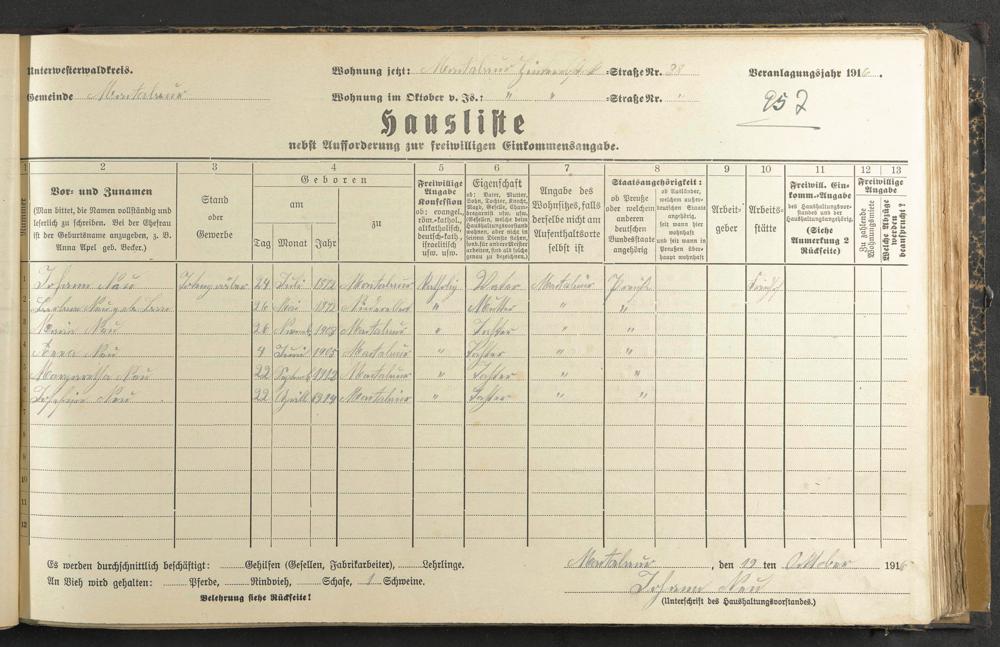 Unterwesterwaldkreis. Wohnung jetzt: Montabaur -Straße Nr. 28 Veranlagungsjahr 1916.
Gemeinde Montabaur Wohnung im Oktober v. Js.: " " -Straße Nr. " 957
Hausliste
nebst Aufforderung zur freiwilligen Einkommensangabe.
1 2 3 4 5 6 7 8 9 10 11 12 13
Nummer
Vor- und Zunamen
(Man bittet, die Namen vollständig und
leserlich zu schreiben. Bei der Ehefrau
ist der Geburtsname anzugeben, z. B.
Anna Apel geb. Becker.)
Stand
oder
Gewerbe
Geboren
am
zu
Tag Monat Jahr
Freiwillige
Angabe
Konfession
ob: evangel.,
röm.-kathol.,
altkatholisch,
deutsch-kath.,
israelitisch
usw. usw.
Eigenschaft
ob: Vater, Mutter,
Sohn, Tochter, Knecht,
Magd, Geselle,
Angabe des
Wohnsitzes, falls
derselbe nicht am
Aufenthaltsorte
selbst ist
Staatsangehörigkeit:
ob Preuße
oder welchem
anderen
deutschen
Bundesstaate
angehörig
ob Ausländer,
welchem außer-
deutschen Staate
angehörig,
seit wann hier
wohnhaft
und seit wann in
Preußen über-
haupt wohnhaft
Arbeit-
geber
Arbeits-
stätte
Freiwill. Ein-
komm.-Angabe
des Haushaltungsvor-
standes und der
Haushaltungsangehörig.
(Siehe
Anmerkung 2
Rückseite)
Freiwillige
Angabe
Zu zahlende
Wohnungsmiete
Welche Abzüge
werden
beansprucht?
1 Johann Nau 24 Juli 1872 Montabaur Katholig Vater Montabaur Preuße
2 26 Mai 1872 " Mutter " "
3 Maria Nau 26 1903 Montabaur " Tochter " "
4 Anna Nau 4 Juni 1905 Montabaur " Tochter " "
5 Margaretha Nau 22 1912 Montabaur " Tochter " "
6 Josefine Nau 22 April 1914 Montabaur " Tochter " "
7
8
9
10
11
12
Es werden durchschnittlich beschäftigt: Gehilfen (Gesellen, Fabrikarbeiter), Lehrlinge.
An Vieh wird gehalten: Pferde, Rindvieh, Schafe, 1 Schweine.
Belehrung siehe Rückseite!
Montabaur, den 19 ten Oktober 1916
Johann Nau
(Unterschrift des Haushaltungsvorstandes.)